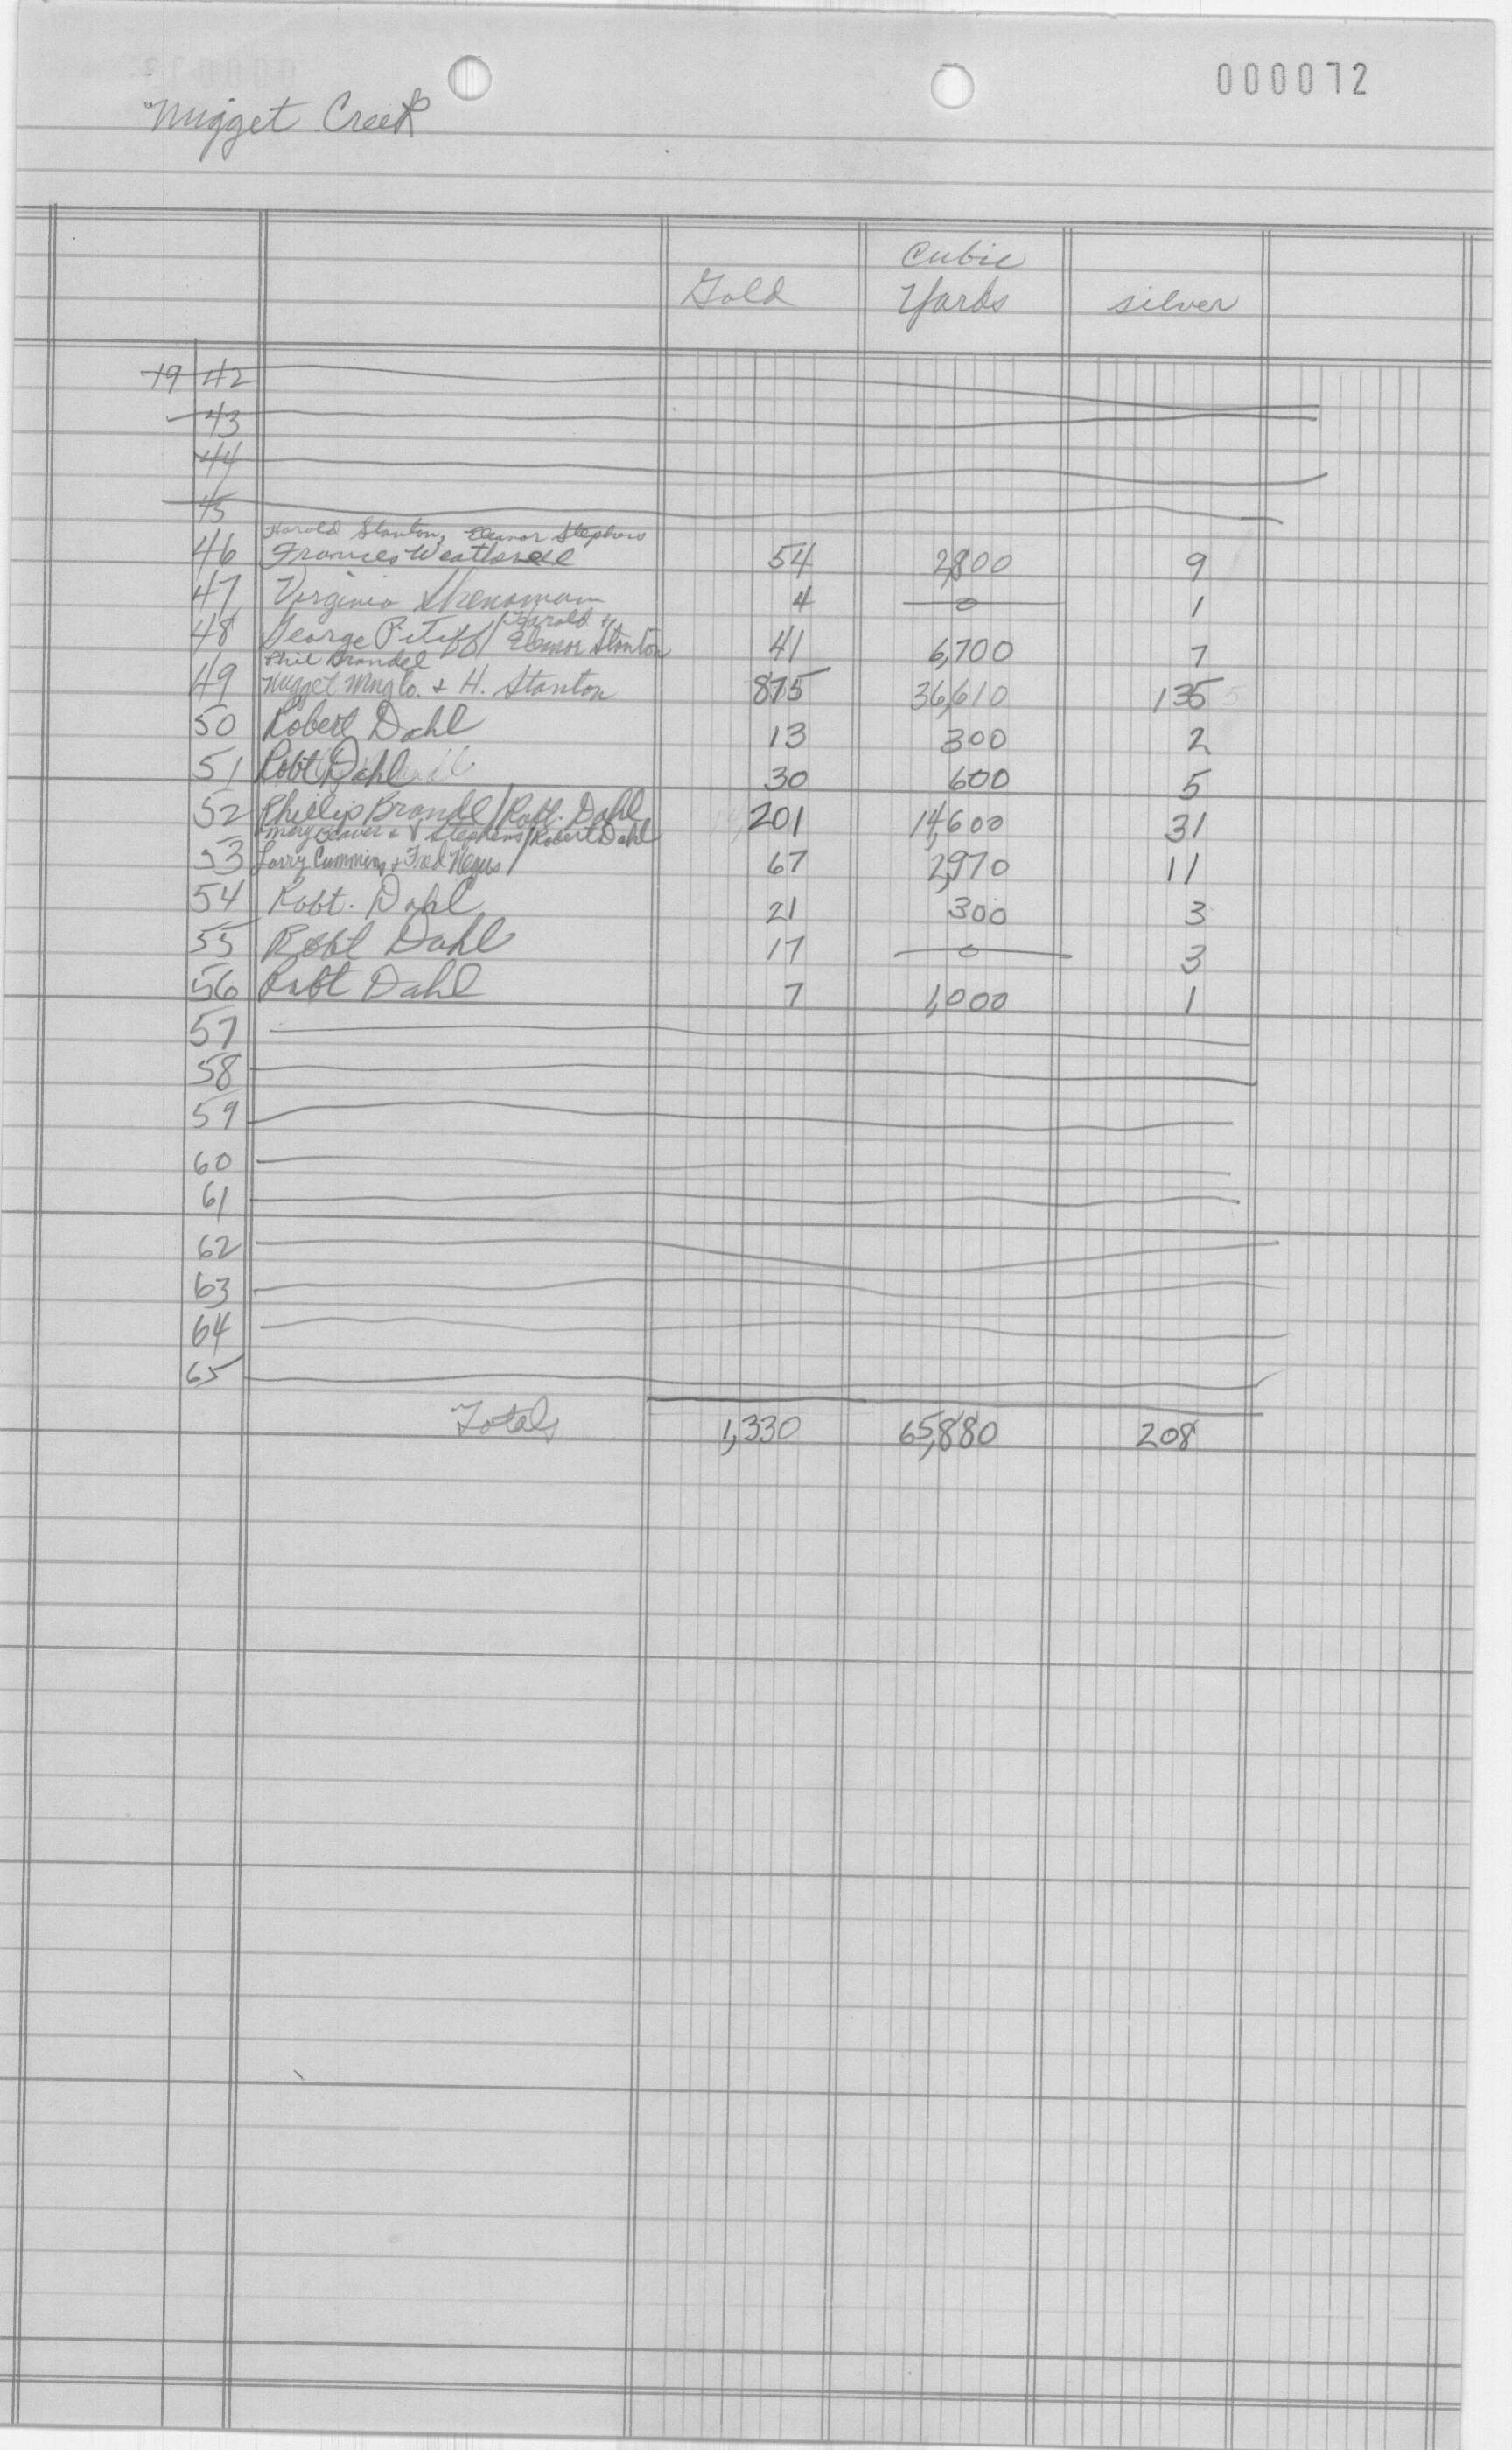 000072
"Nugget Creek
Cubic
Gold Yards silver
19 42
43
44
45
Harold Stanton, Eleanor Stephens
46 Frances 54 2,800 9
47 Virginia 4 0 1
Harold &
48 George / Eleanor Stanton 41 6,700 7
Phil Brandel
49 Nugget Mng Co. & H. Stanton 875 36,610 135
50 Robert Dahl 13 300 2
51 Robt Dahl 30 600 5
52 Phillip Brandl / Robt. Dahl 201 14,600 31
Mary Beaver & Stephens / Robert Dahl
53 Larry Cummins & Fred Negus / 67 2,970 11
54 Robt. Dahl 21 300 3
55 Robt Dahl 17 0 3
56 Robt Dahl 7 1,000 1
57
58
59
60
61
62
63
64
65
Totals 1,330 65,880 208